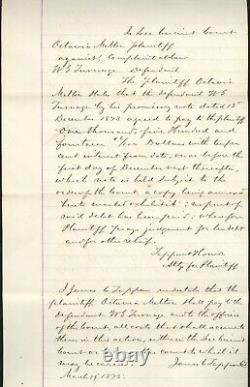 In Lee Circuit Court
Octavia Melton plaintiff
against Complaint at Law
W S Turnage Defendant
The Plaintiff Octavia
Melton states that the defendant W S
Turnage by his promissory note dated 15th
December 1873 agreed to pay to the plaintiff
One thousand, five Hundred and
fourteen /100 Dollars with
cent interest from date, on or before the
first day of December next thereafter,
which note is held subject to the
order of the Court a copy being annexed
hereto marked exhibit no part of
said debt has been paid, Wherefore
Plaintiff prays judgment for her debt
and for other relief.
Atty for Plaintiff
I James C Tappan undertake that the
plaintiff Octavia Melton shall pay to the
defendant W S Turnage and to the officers
of the Court, all costs that shall accrue
to them in this action, either in the Lee Circuit
Court or any other court to which it
may be carried. James C Tappan
March 19 1875